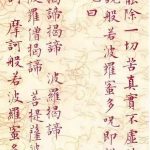 能除一切苦真實不虛
說般若波羅蜜多呪即
曰
揭諦揭諦 波羅揭諦
波羅僧揭諦 菩提薩婆
摩訶般若波羅蜜多